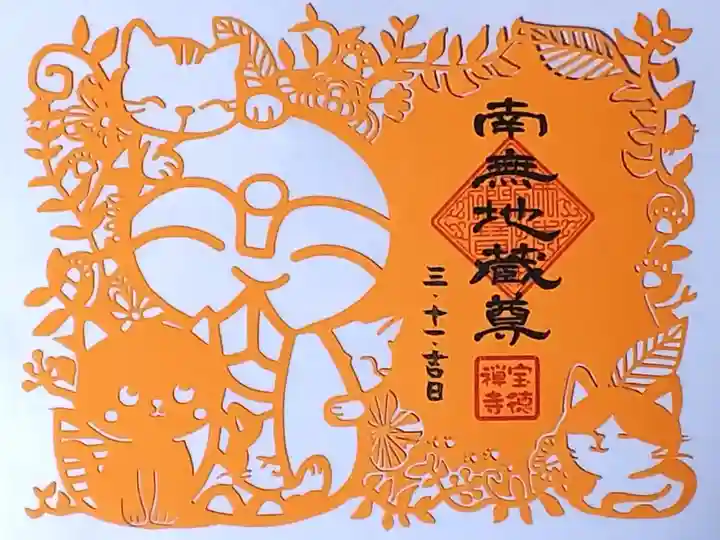 南無地蔵尊
三・十一・吉日
宝徳
禅寺